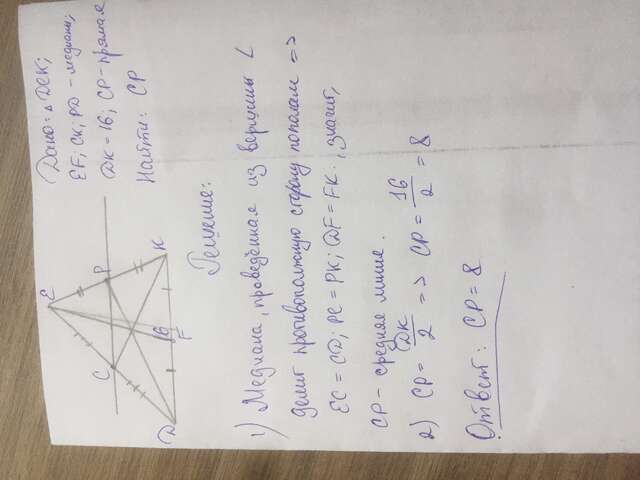 Дано: △DEK;
EF; CK; PD - медианы;
DK = 16; CP - прямая
Найти: CP
E
C
P
16
D
F
K
Решение:
1) Медиана, проведённая из вершины ∠
делит противоположную сторону пополам =>
EC = CD; PE = PK; DF = FK, значит,
CP - средняя линия.
2) CP = DK/2 => CP = 16/2 = 8
Ответ: CP = 8